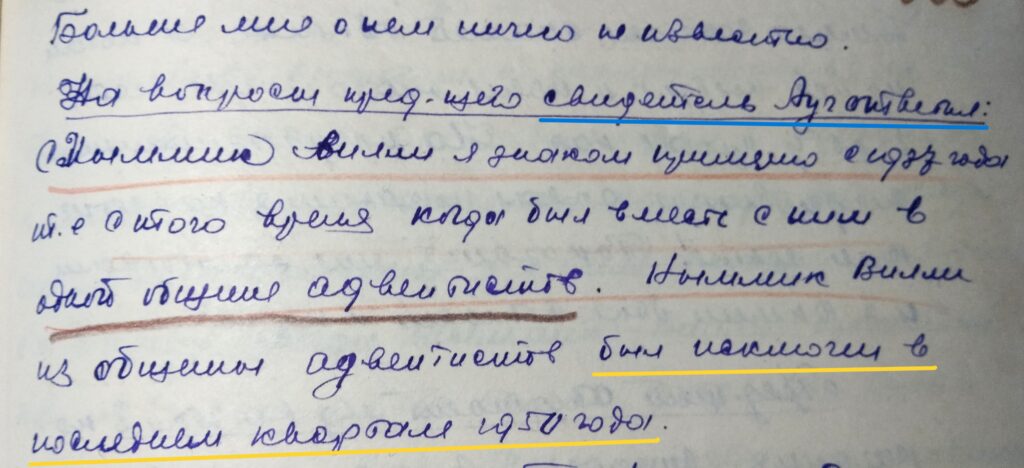 Больше мне о нем ничего неизвестно.
На вопросы пред-щего свидетель Ауг ответил:
(Ныммик) Вилли я знаком примерно с 1937 года
т.е с этого время когда был вместе с ним в
одной общине адвентистов. Ныммик Вилли
из общины адвентистов был исключен в
последнем квартале 1950 года.